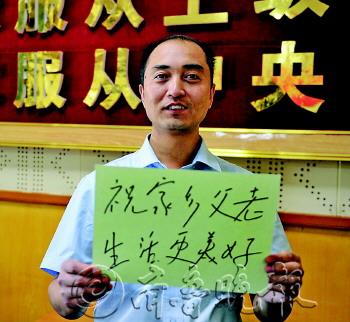 服从上级
服从中央
祝家乡父老
生活更美好
@齐鲁晚报